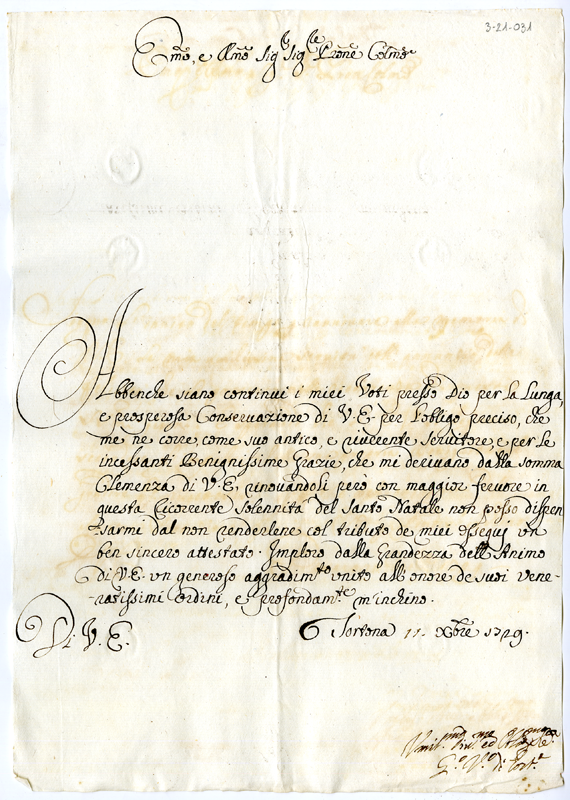 3-21-031
Em̃o, e Rm̃o Sig.r Sig.r Pron̄e Colm̃o
Abbenche siano continui i miei Voti presso Dio per la Lunga,
e prosperosa Conservazione di V.E. per l'obligo preciso, che
me ne corre, come suo antico, e riverente Servitore, e per le
incessanti Benignissime Grazie, che mi derivano dalla somma
Clemenza di V.E. rinovandoli però con maggior fervore in
questa ricorrente Solennità del Santo Natale non posso dispen
sarmi dal non renderlene col tributo de miei ossequj un
ben sincero attestato. Imploro dalla Grandezza dell'Animo
di V.E. un generoso aggradim.to unito all'onore de suoi vene-
-ratissimi ordini, e profondam.te m'inchino.
Di V. E. Tortona 11. Xbre 1729.
Umil.mo
G. V.o di Tort.a